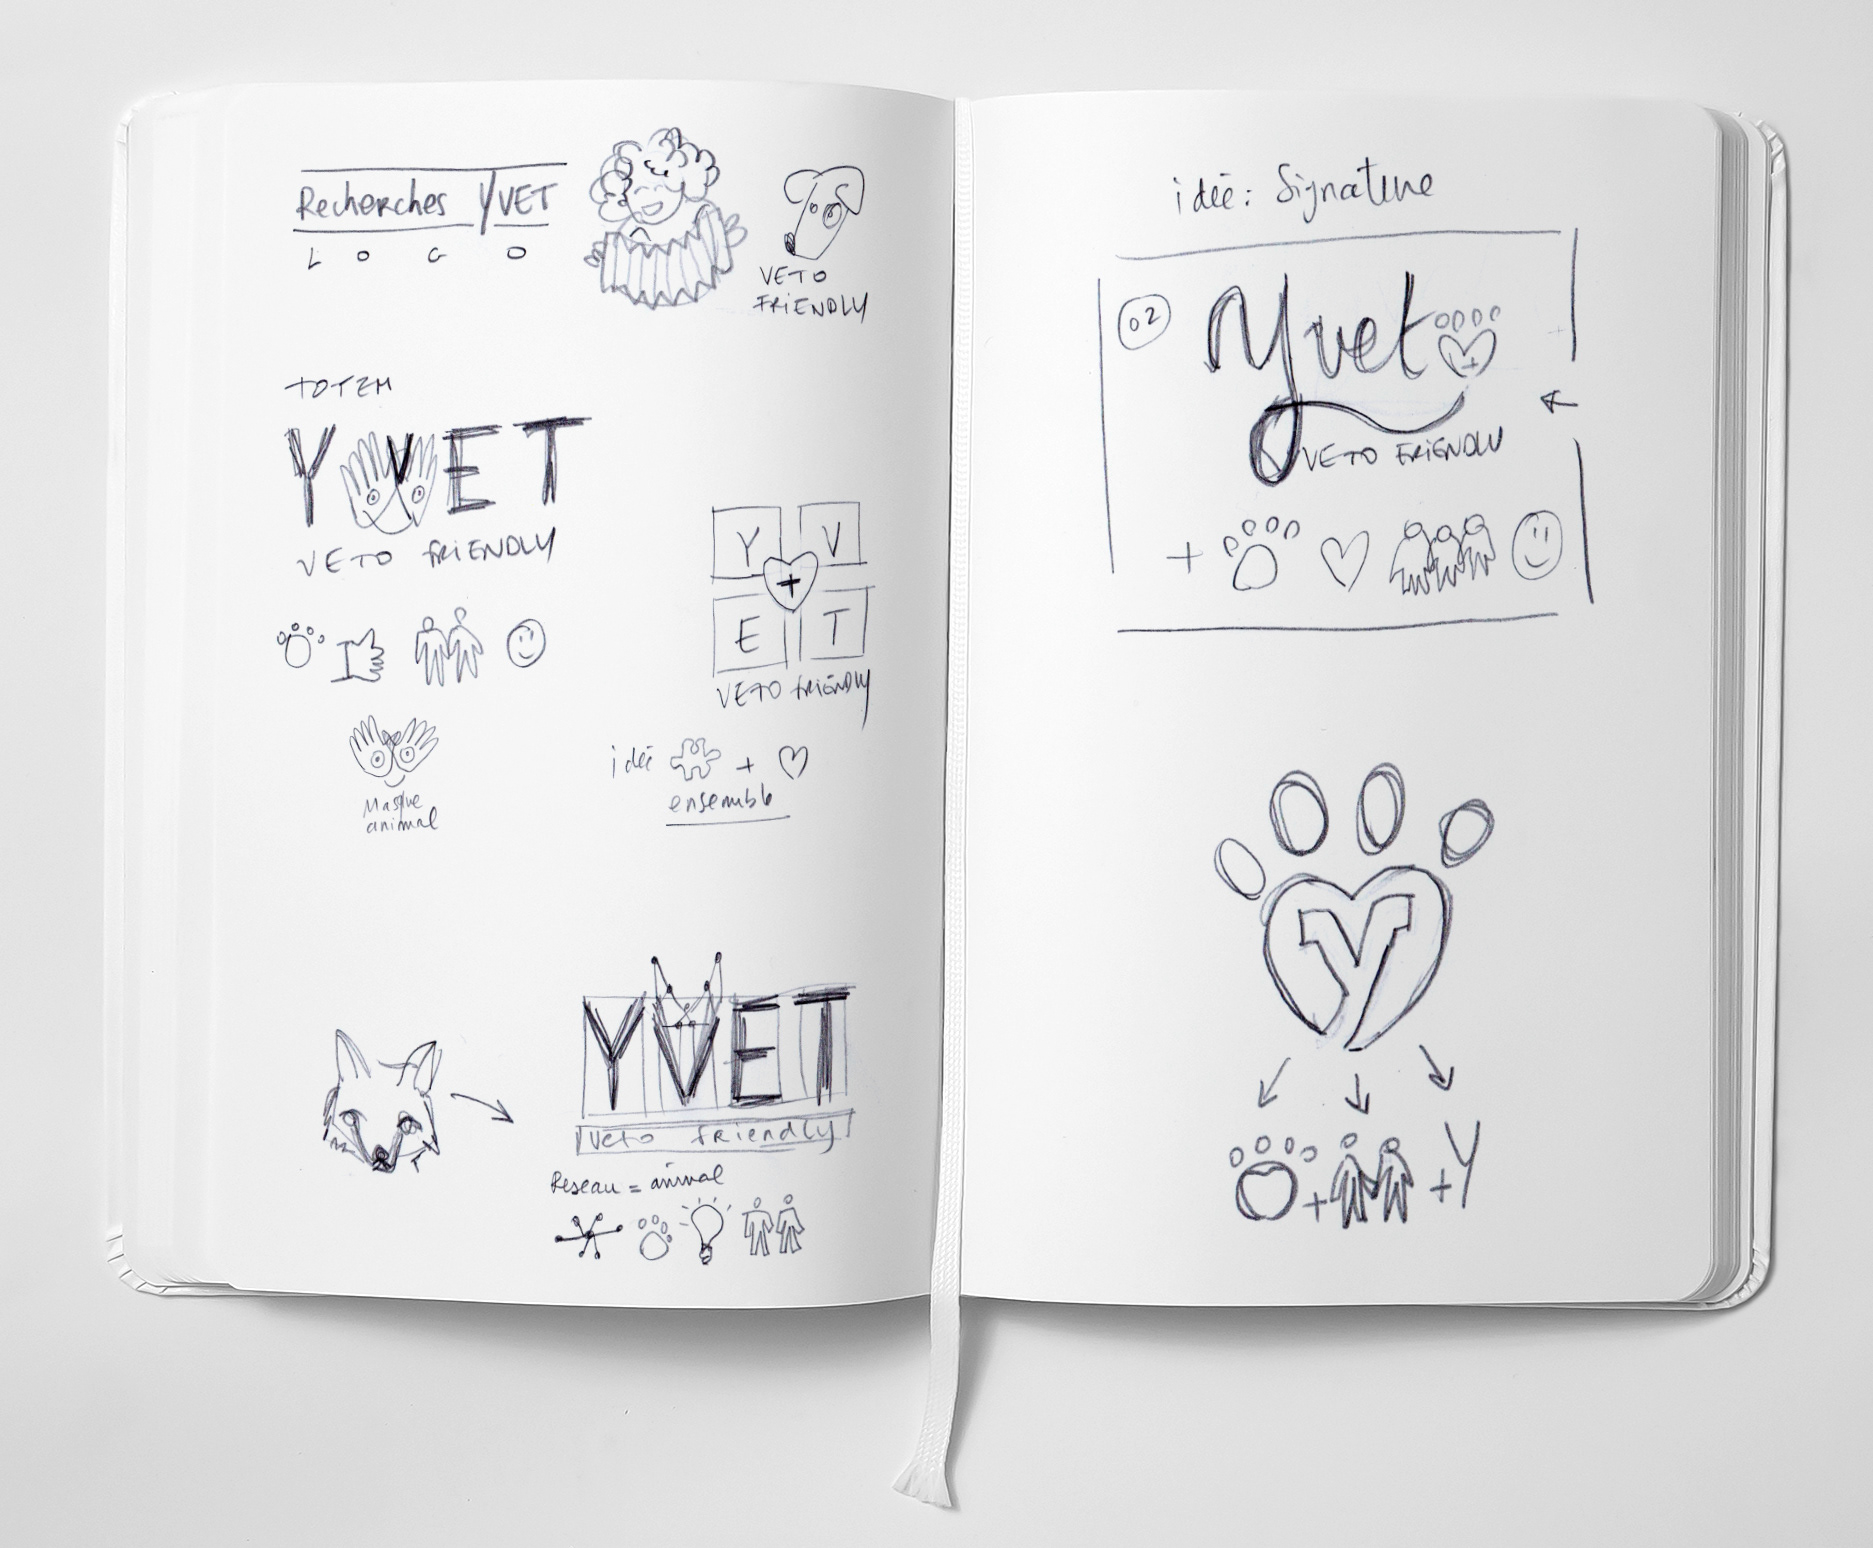 Recherches YVET
LOGO
VETO
FRIENDLY
TOTEM
YVET
VETO FRIENDLY
Y V
+
E T
VETO FRIENDLY
Masque
animal
idée + 
ensemble
YVET
veto friendly
Reseau = animal
idée: Signature
02
Yvet
+
VETO FRIENDLY
+
Y
+ + Y